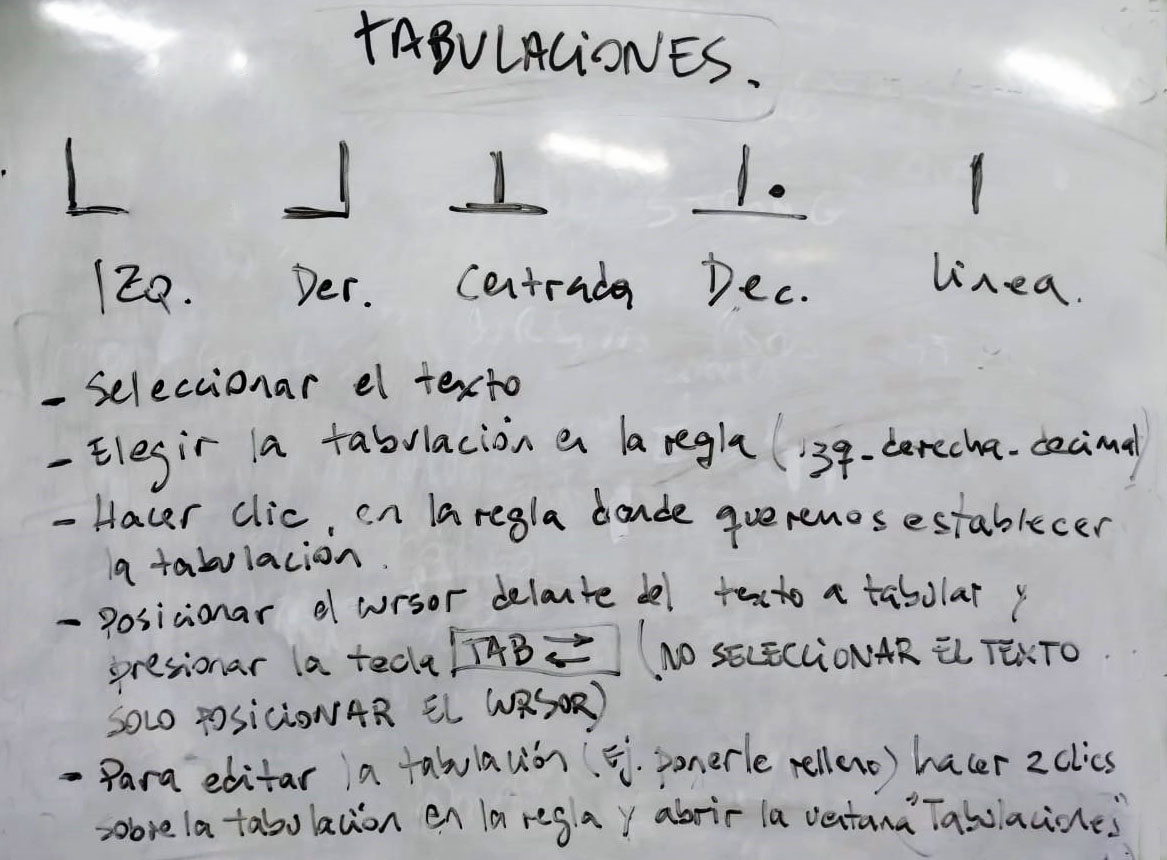 TABULACIONES.
IZQ. Der. Centrada Dec. linea.
- Seleccionar el texto
- Elegir la tabulación en la regla (izq-derecha-decimal)
- Hacer clic, en la regla donde queremos establecer
la tabulación.
- Posicionar el cursor delante del texto a tabular y
presionar la tecla TAB ⇄ (NO SELECCIONAR EL TEXTO
SOLO POSICIONAR EL CURSOR)
- Para editar la tabulación (Ej. ponerle relleno) hacer 2 clics
sobre la tabulación en la regla y abrir la ventana "Tabulaciones"